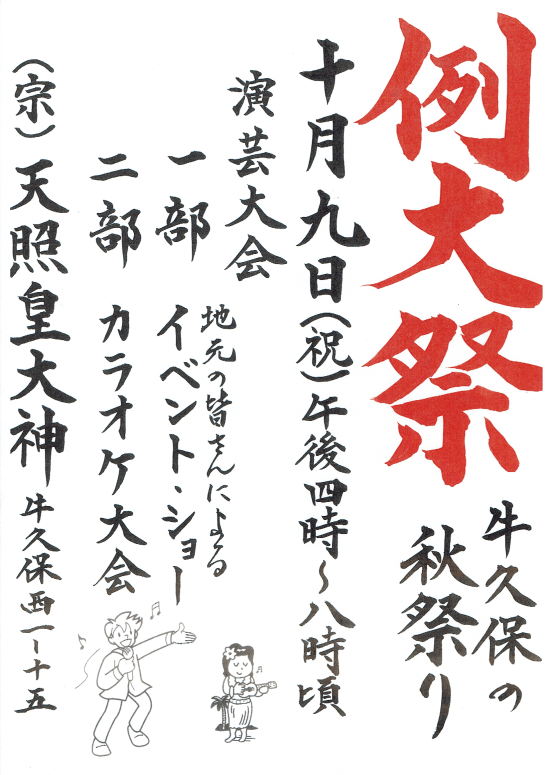 例大祭
牛久保の
秋祭り
十月九日(祝)午後四時~八時頃
演芸大会
地元の皆さんによる
一部 イベント・ショー
二部 カラオケ大会
(宗)天照皇大神 牛久保西一ー十五